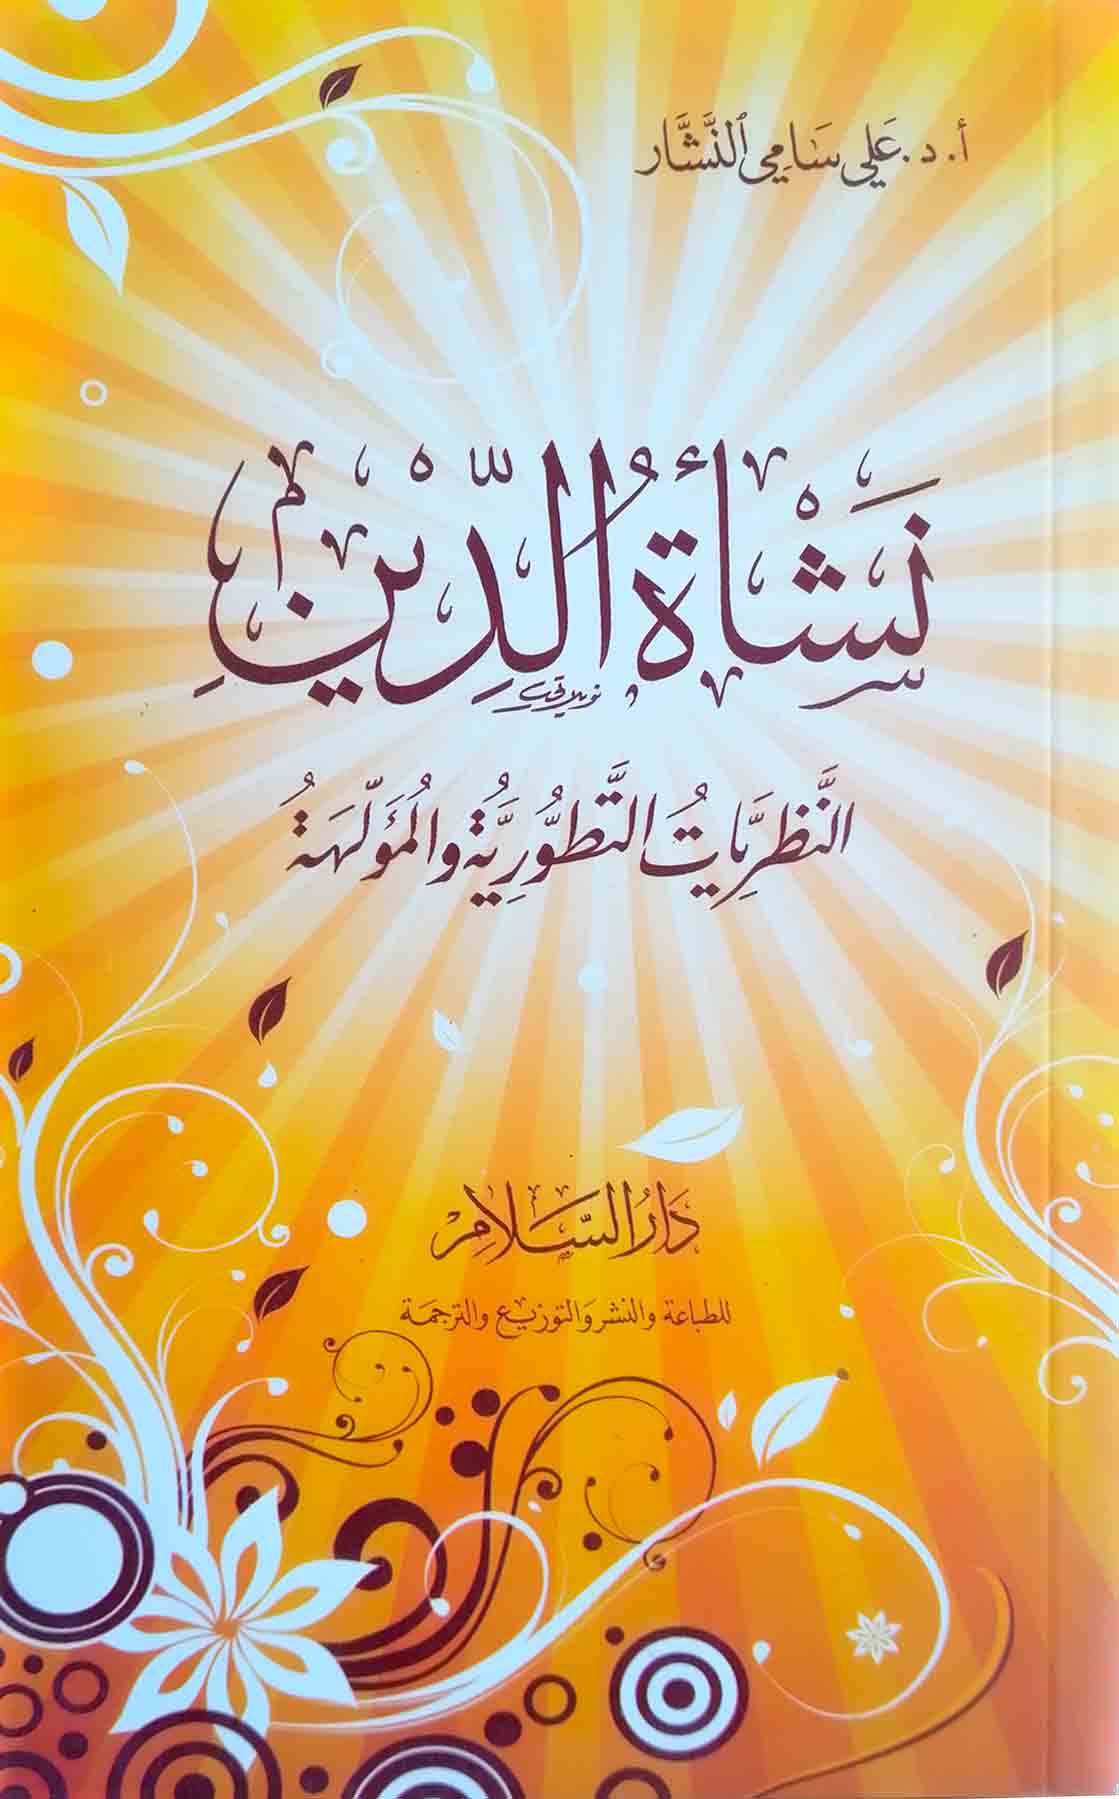 أ. د. عَلِي سَامِي النَّشَّار
نَشْأَةُ الدِّيْنِ
النَّظَرِيَّاتُ التَّطَوُّرِيَّةُ وَالْمُؤَلِّهَةُ
دَارُ السَّلَامِ
للطباعة والنشر والتوزيع والترجمة